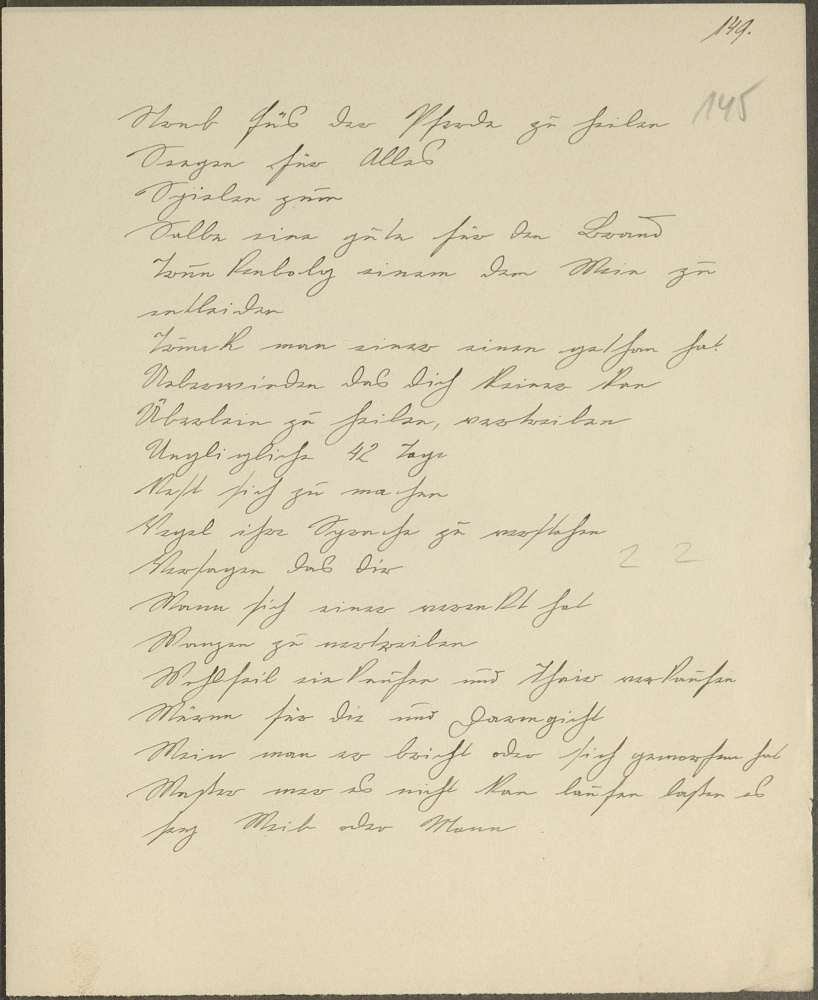 149.
145
Streb Füs der Pferde zu heilen
Seegen für Alles
Spielen zum
Salbe eine gute für den Brand
Trunkenbolg einem dem Wein zu
entleiden
Trunck man einer einen gethan hat
Ueberwinden das dich keiner kan
Überbein zu heilen, vertreiben
Ungligliche 42 Tage
Vest sich zu machen
Vegel ihre Sprache zu verstehen
Versagen das dir
Wann sich einer verenkt hat
Wanzen zu vertreiben
Wohlfeil ein kaufen und Their verkaufen
Würm für die und Darmgicht
Wein man er bricht oder sich geworfen hat
Waßer wer es nicht kan laufen laßen es
sey Weib oder Mann
2 2